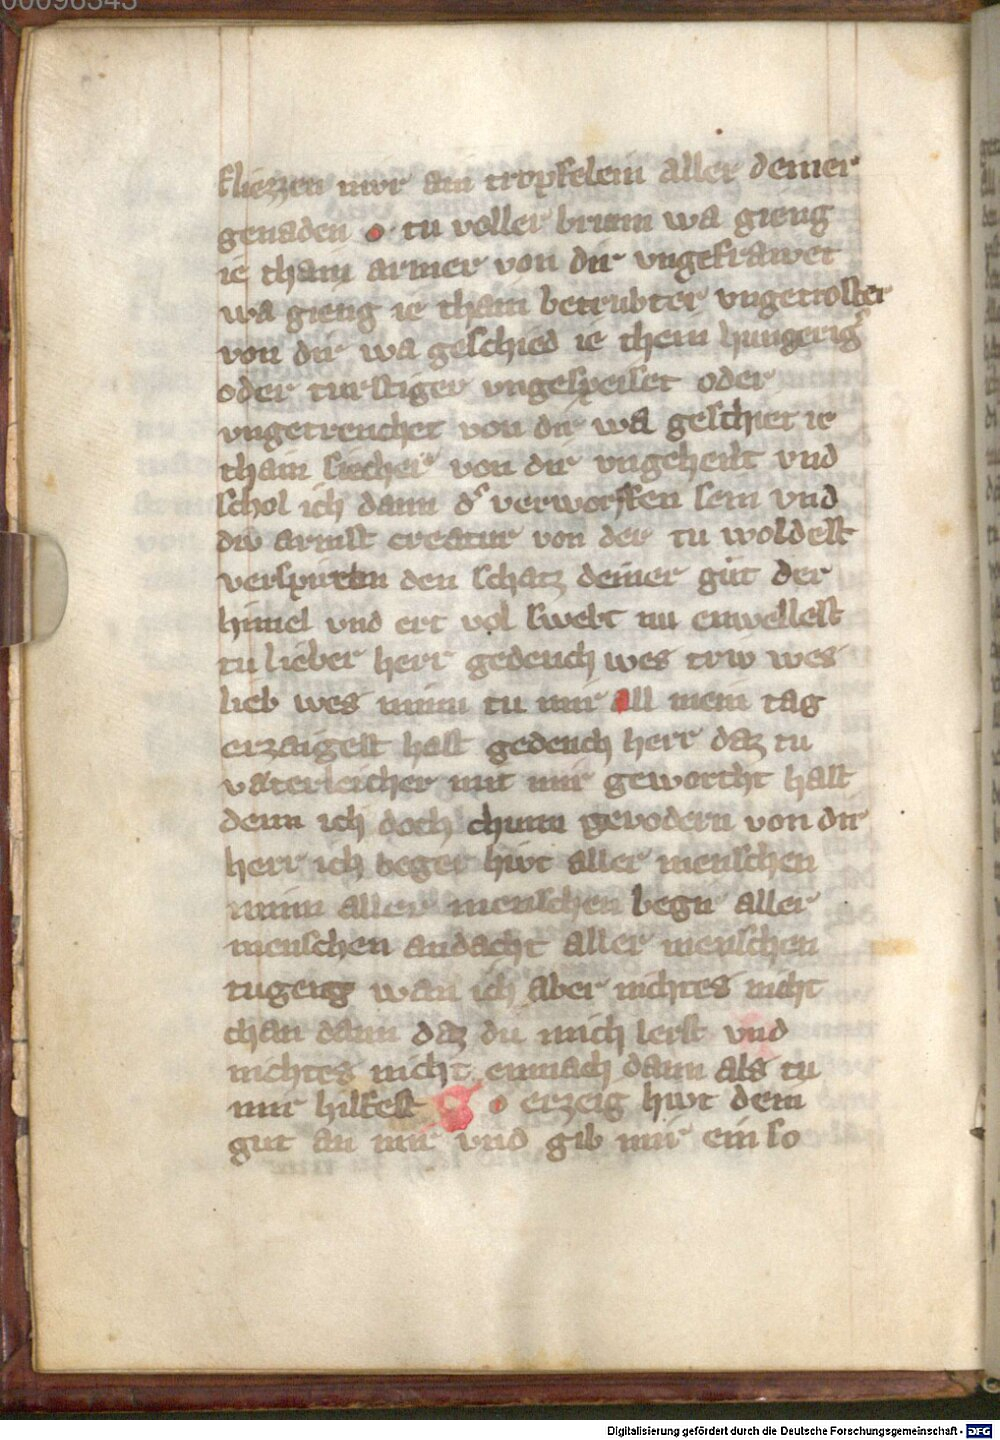 00096343
fliezzen mir ain tropfelein aller deiner
genaden o tu voller brunn wa gieng
ie chain armer von dir vngefrawet
wa gieng ie chain betrubter vngetroster
von dir wa geschied ie chein hungerig
oder turstiger vngespeiset oder
vngetrenchet von dir wa geschiet ie
chain siecher von dir vngeheilt vnd
schol ich dann d verworffen sein vnd
div armist creatur von der tu woldest
den schatz deiner güt der
himel vnd ert vol swebt nu enwellest
tu lieber herr gedench wes triw wes
lieb wes minn tu mir all mein tag
erzaigest hast gedench herr daz tu
vaterleicher mit mir geworcht hast
denn ich doch chunn gevodern von dir
herr ich beger hivt aller menschen
minn aller menschen begir aller
menschen andacht aller menschen
tugent wan ich aber nichtes nicht
chan dann daz du mich lerst vnd
nichtes nicht enmach dann als tu
mir hilfest o erzeig hivt dein
gut an mir vnd gib mir ein so
Digitalisierung gefördert durch die Deutsche Forschungsgemeinschaft - DFG